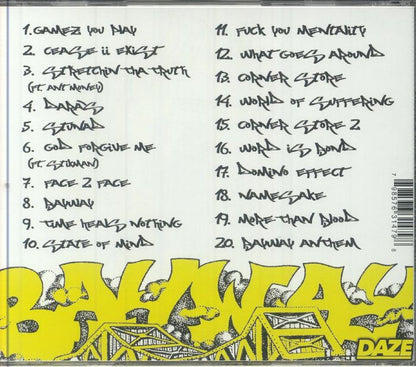 1. GAMEZ YOU PLAY
2. CEASE ii EXIST
3. STRETCHIN THA TRUTH
(FT. ANT MONEY)
4. DARTS
5. STUNAD
6. GOD FORGIVE ME
(FT. STIKMAN)
7. FACE 2 FACE
8. BAYWAY
9. TIME HEALS NOTHING
10. STATE OF MIND
11. FUCK YOU MENTALITY
12. WHAT GOES AROUND
13. CORNER STORE
14. WORLD OF SUFFERING
15. CORNER STORE 2
16. WORD IS BOND
17. DOMINO EFFECT
18. NAMESAKE
19. MORE THAN BLOOD
20. BAYWAY ANTHEM
BAYWAY
DAZE